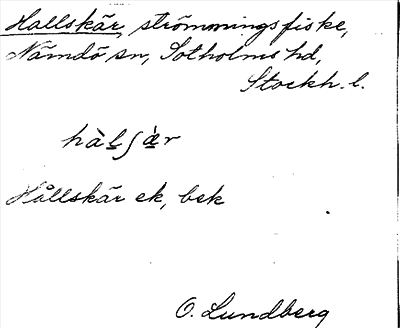 Hallskär, strömmingsfiske,
Nämdö sn, Sotholms hd,
Stockh. l.
hàlʃà̤r
Hållskär ek, bek
O. Lundberg